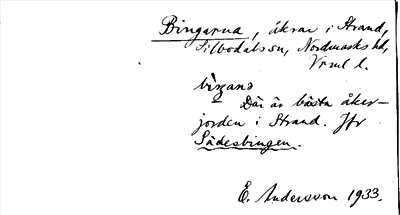 Bingarna, åkrar i Strand,
Silbodals sn, Nordmarks hd,
Vrml l.
bìŋana
Där är bästa åker-
jorden i Strand. Jfr
Sädesbingen.
E. Andersson 1933.